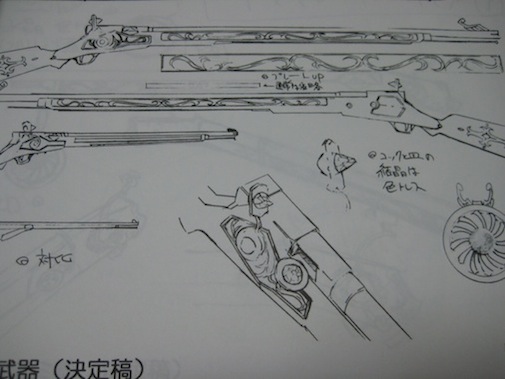 プレートup
コックと皿の
結晶は
色トレス
対比
武器（決定稿）